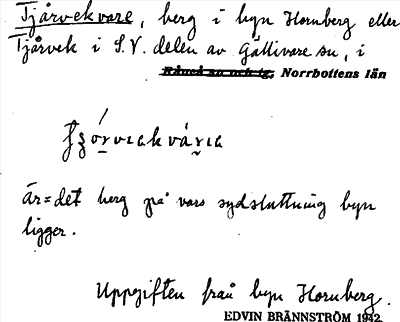 Tjårvekvare, berg i byn Hornberg eller
Tjårvek i S.V. delen av Gällivare sn, i
Råneå sn och tg, Norrbottens län
är det berg på vars sydsluttning byn
ligger.
Uppgiften från byn Hornberg.
EDVIN BRÄNNSTRÖM 1942.